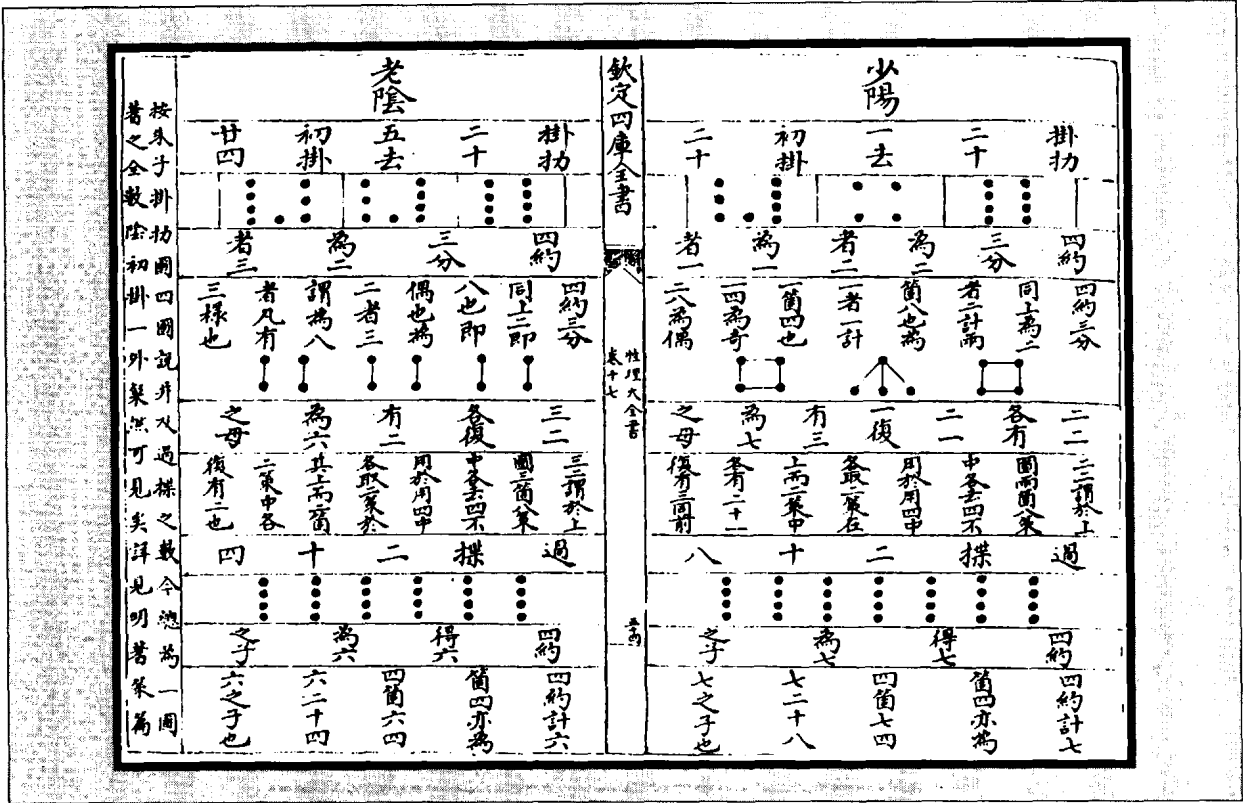 少陽
掛扐
二十
一去
初掛
二十
四約
三分
為二
者二
為一
者一
四約三分
同上為二
者二計兩
箇八也為
二者一計
一箇四也
一四為奇
二八為偶
二二
各有
二一
一復
有三
為七
之母
二二謂於上
圖兩箇八策
中各去四不
用於用四中
各取二策在
上而二策中
各有二十一
復有三同前
過揲二十八
四約
得七
為七
之子
四約計七
箇四亦為
四箇七四
七二十八
七之子也
欽定四庫全書
性理大全書
卷十七
老陰
掛扐
二十
五去
初掛
廿四
四約
三分
為二
者三
四約三分
同上二即
八也即
偶也為
二者三
謂為八
者凡有
三樣也
三二
各復
有二
為六
之母
三二謂於上
圖三箇八策
中各去四不
用於用四中
各取二策於
其上而二箇
二策中各
復有二也
過揲二十四
四約
得六
為六
之子
四約計六
箇四亦為
四箇六四
六二十四
六之子也
按朱子掛扐圖四圖說并及過揲之數今總為一圖
蓍之全數除初掛一外粲然可見矣詳見明蓍策篇